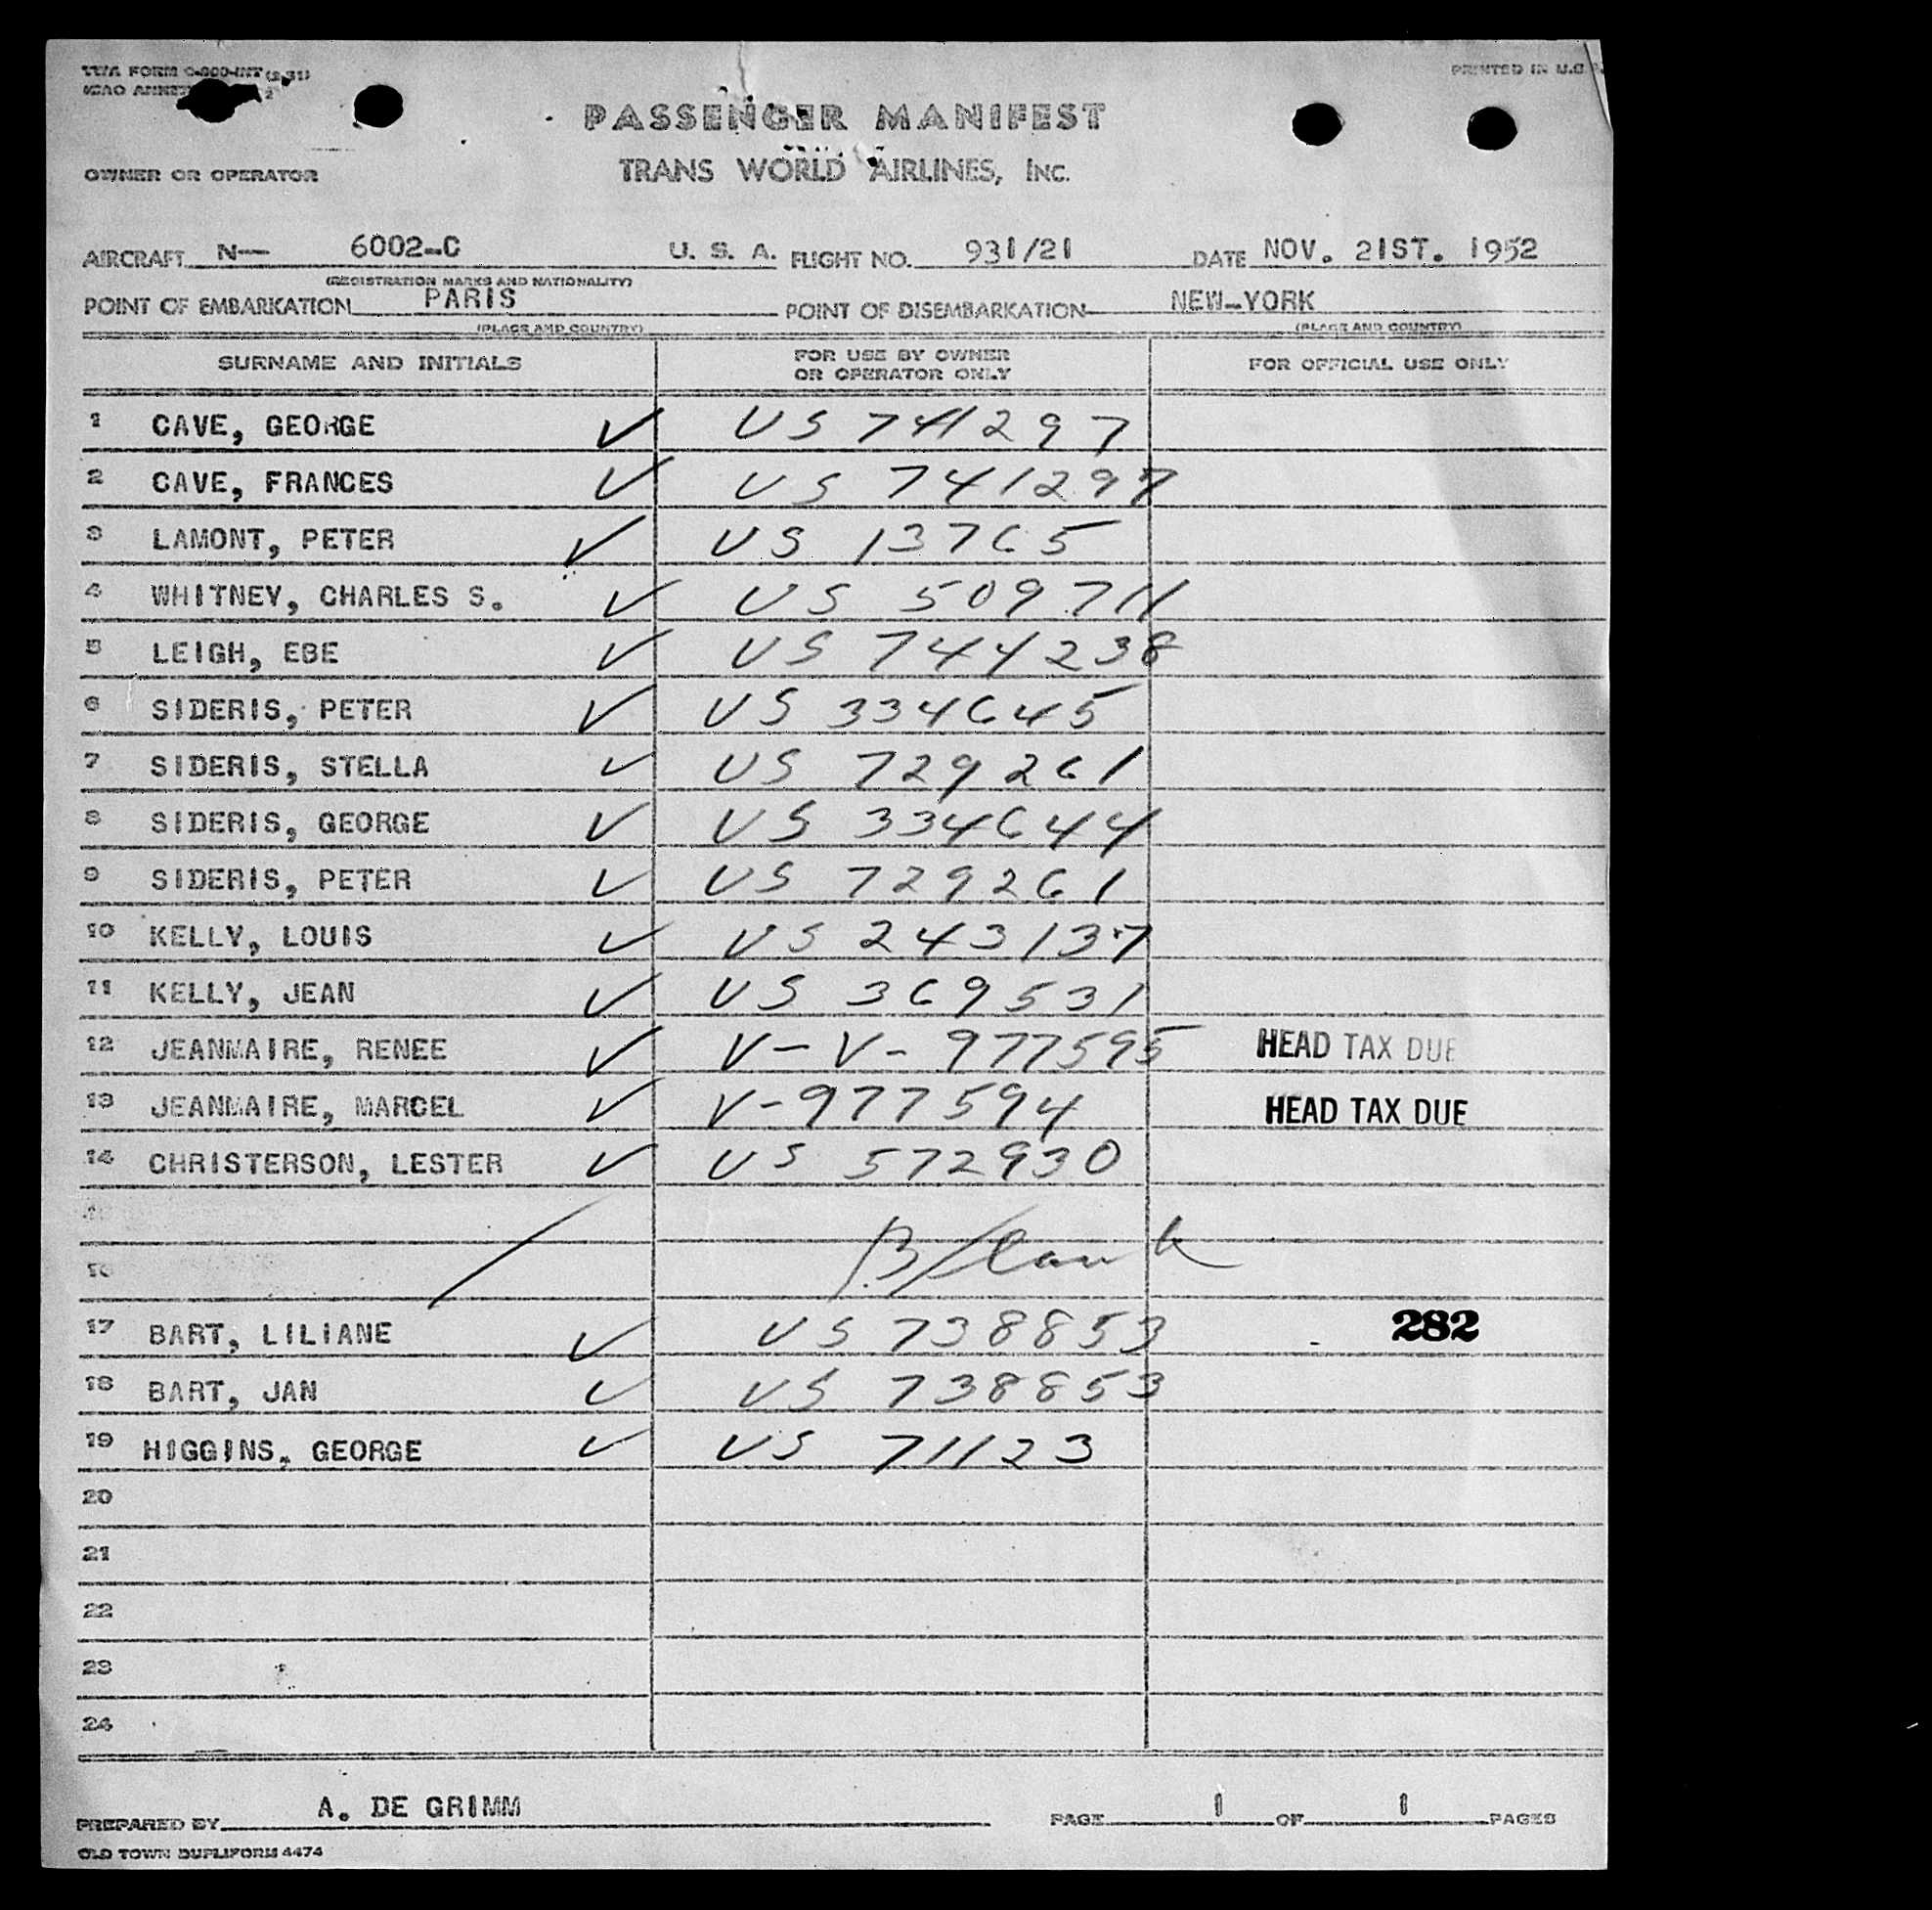 TWA FORM O-800-INT (2.51)
PRINTED IN U.S.
ICAO ANNEX
PASSENGER MANIFEST
OWNER OR OPERATOR
TRANS WORLD AIRLINES, INC.
AIRCRAFT N— 6002-C U. S. A. FLIGHT NO. 931/21 DATE NOV. 21ST. 1952
(REGISTRATION MARKS AND NATIONALITY)
POINT OF EMBARKATION PARIS POINT OF DISEMBARKATION NEW-YORK
(PLACE AND COUNTRY) (PLACE AND COUNTRY)
SURNAME AND INITIALS FOR USE BY OWNER OR OPERATOR ONLY FOR OFFICIAL USE ONLY
1 CAVE, GEORGE ✓ US 741297
2 CAVE, FRANCES ✓ US 741297
3 LAMONT, PETER ✓ US 13765
4 WHITNEY, CHARLES S. ✓ US 509711
5 LEIGH, EBE ✓ US 744238
6 SIDERIS, PETER ✓ US 334645
7 SIDERIS, STELLA ✓ US 729261
8 SIDERIS, GEORGE ✓ US 334644
9 SIDERIS, PETER ✓ US 729261
10 KELLY, LOUIS ✓ US 243137
11 KELLY, JEAN ✓ US 369531
12 JEANMAIRE, RENEE ✓ V-V-977595 HEAD TAX DUE
13 JEANMAIRE, MARCEL ✓ V-977594 HEAD TAX DUE
14 CHRISTERSON, LESTER ✓ US 572930
15
Blank
16
17 BART, LILIANE ✓ US 738853 282
18 BART, JAN ✓ US 738853
19 HIGGINS, GEORGE ✓ US 71123
20
21
22
23
24
PREPARED BY A. DE GRIMM PAGE 1 OF 1 PAGES
OLD TOWN DUPLIFORM 4474